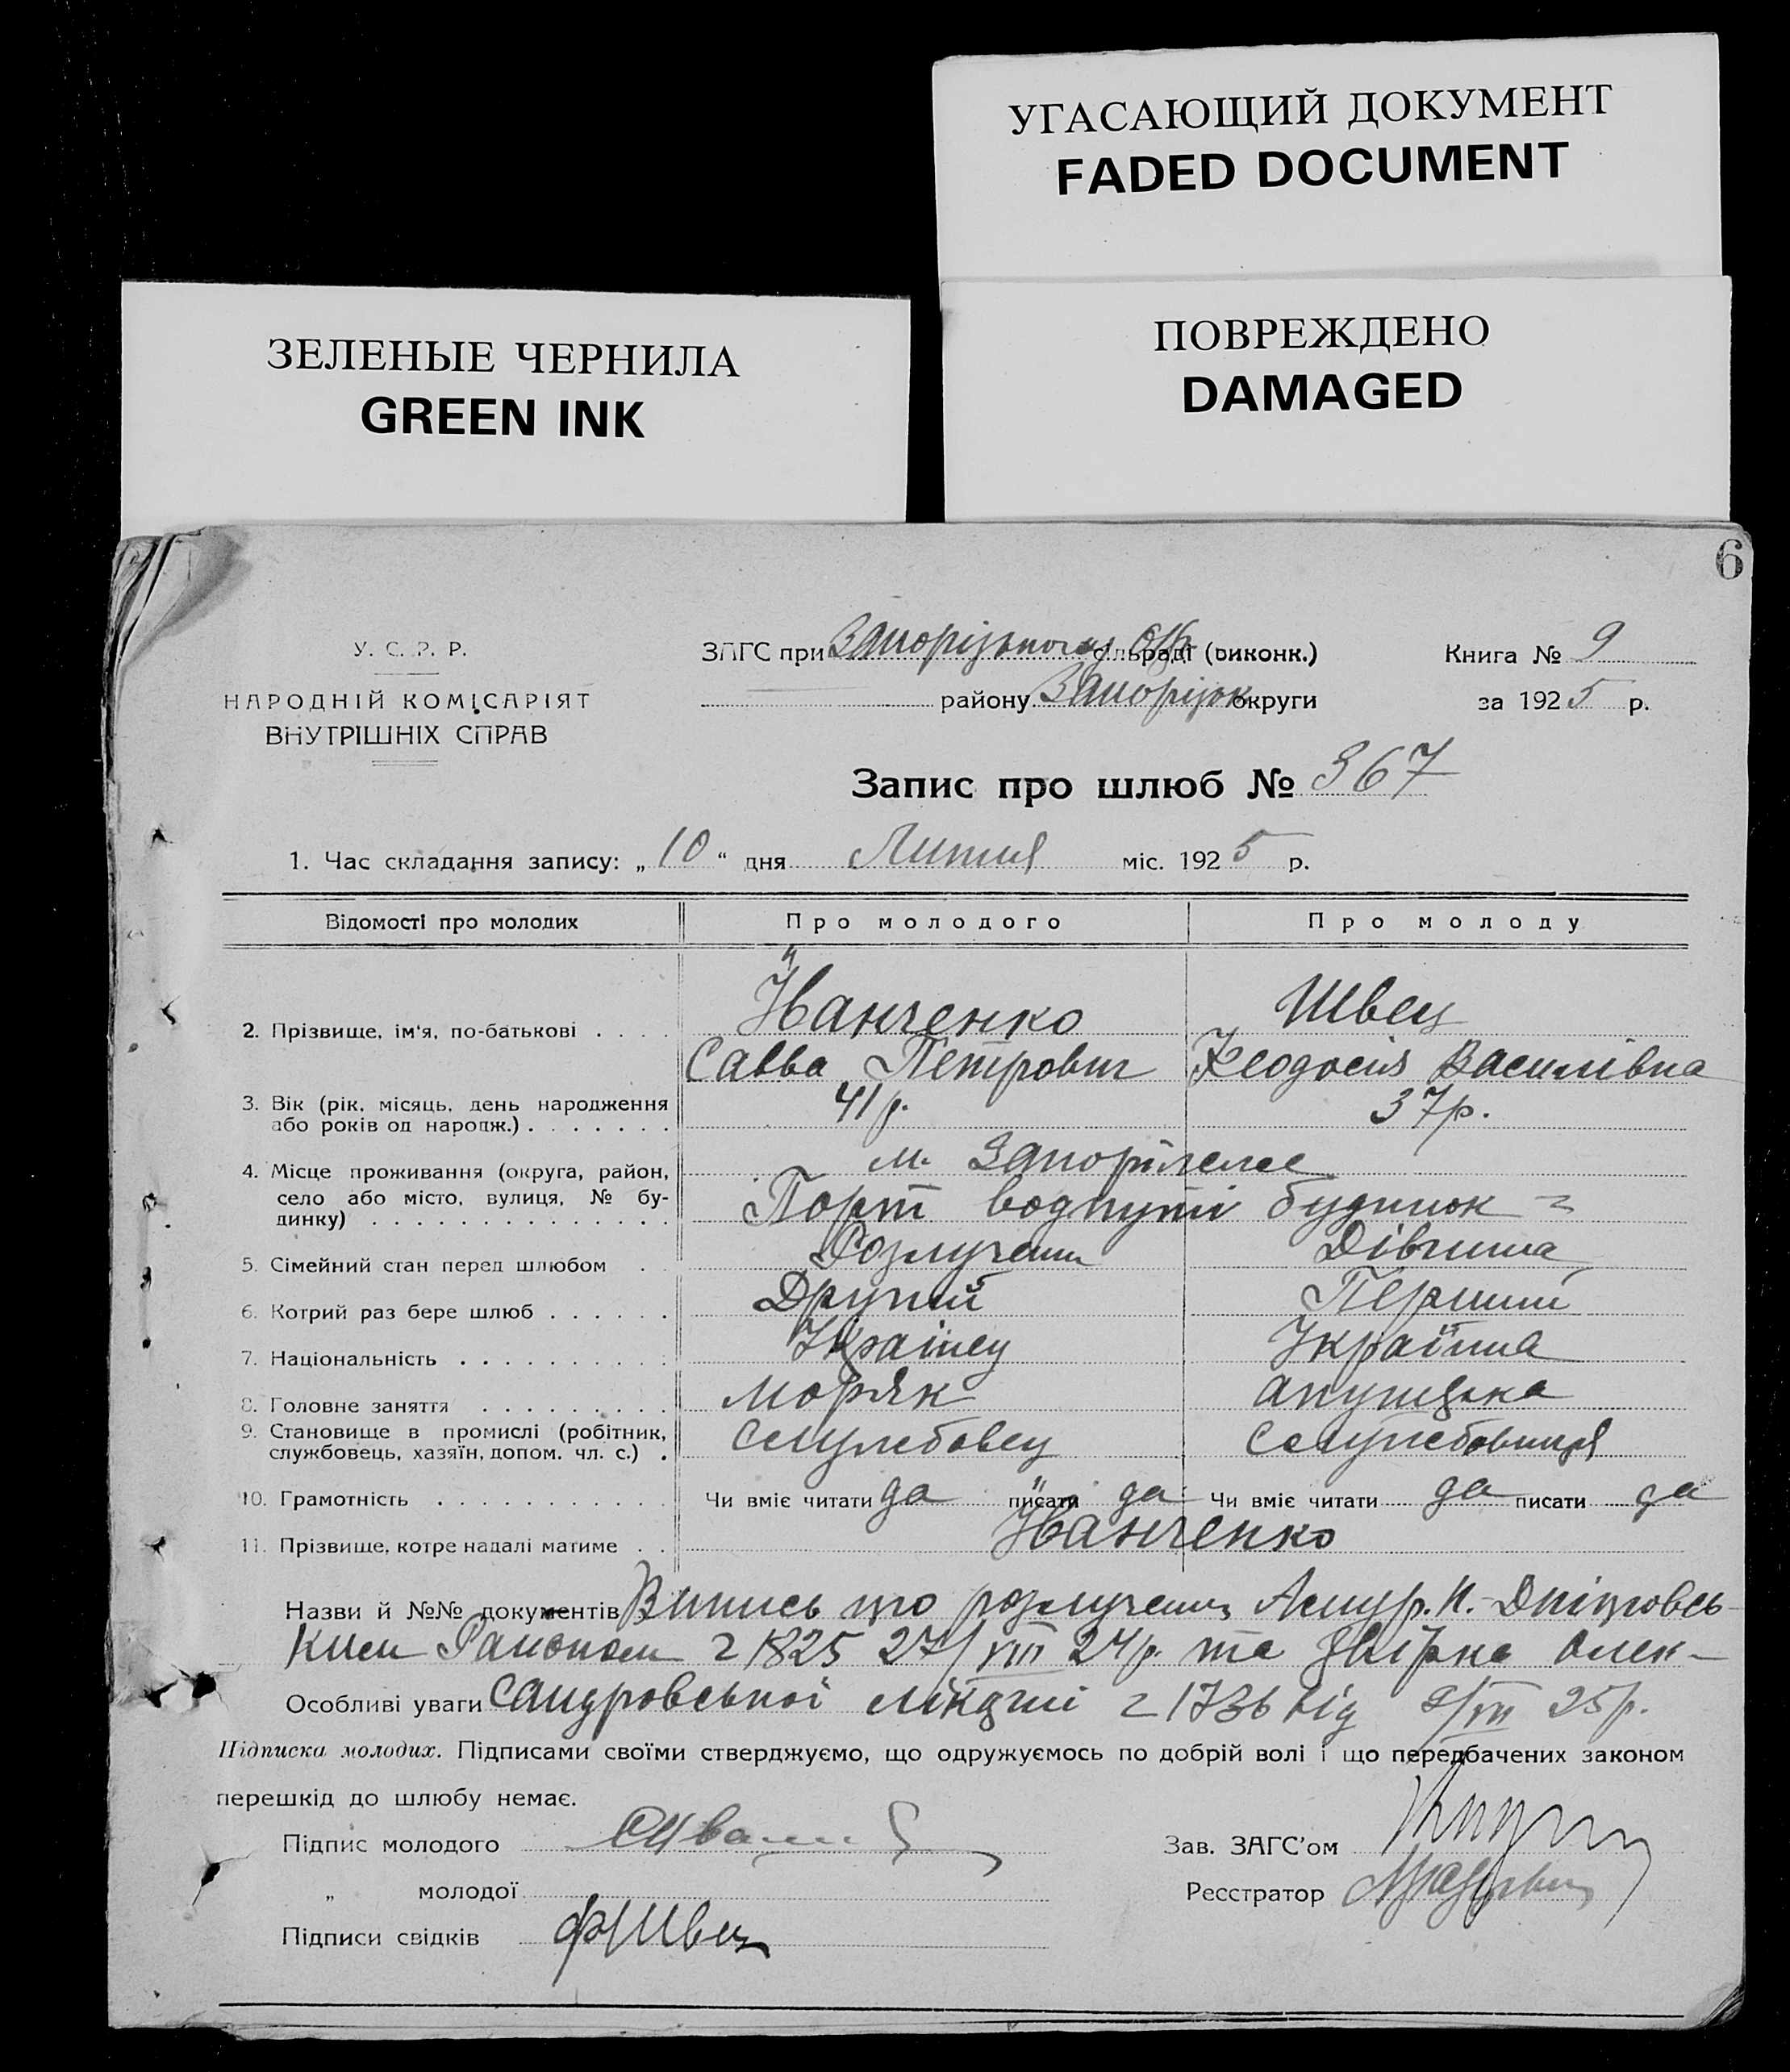 УГАСАЮЩИЙ ДОКУМЕНТ
FADED DOCUMENT
ЗЕЛЕНЫЕ ЧЕРНИЛА
GREEN INK
ПОВРЕЖДЕНО
DAMAGED
6
У. С. Р. Р.
НАРОДНІЙ КОМІСАРІЯТ
ВНУТРІШНІХ СПРАВ
ЗАГС при сільраді (виконк.)
району Запоріжж округи
Книга № 9
за 1925 р.
Запис про шлюб № 367
1. Час складання запису: „ 10 “ дня Липня міс. 1925 р.
Відомості про молодих Про молодого Про молоду
2. Прізвище, ім'я, по-батькові Іванченко Швец
Савва Петрович Феодосія Василівна
3. Вік (рік, місяць, день народження або років од народж.) 41 р. 37 р.
4. Місце проживання (округа, район, село або місто, вулиця, № будинку) м. Запоріжже
Порт водпуті будинок
5. Сімейний стан перед шлюбом Розлучений Дівчина
6. Котрий раз бере шлюб Другий Перший
7. Національність Украінец Украінка
8. Головне заняття моряк акушерка
9. Становище в промислі (робітник, службовець, хазяїн, допом. чл. с.) Службовец Службовиця
10. Грамотність Чи вміє читати да писати да Чи вміє читати да писати да
11. Прізвище, котре надалі матиме Іванченко
Назви й №№ документів Випись про розлучення Амур. Н.-Дніпровсь-
ким Районом 1825 27/VIII 24р. та Олек-
Особливі уваги сандровської 1736 від /VII 25р.
Підписка молодих. Підписами своїми стверджуємо, що одружуємось по добрій волі і що передбачених законом
перешкід до шлюбу немає.
Підпис молодого
Зав. ЗАГС'ом
„ молодої
Реєстратор
Підписи свідків ФШвец